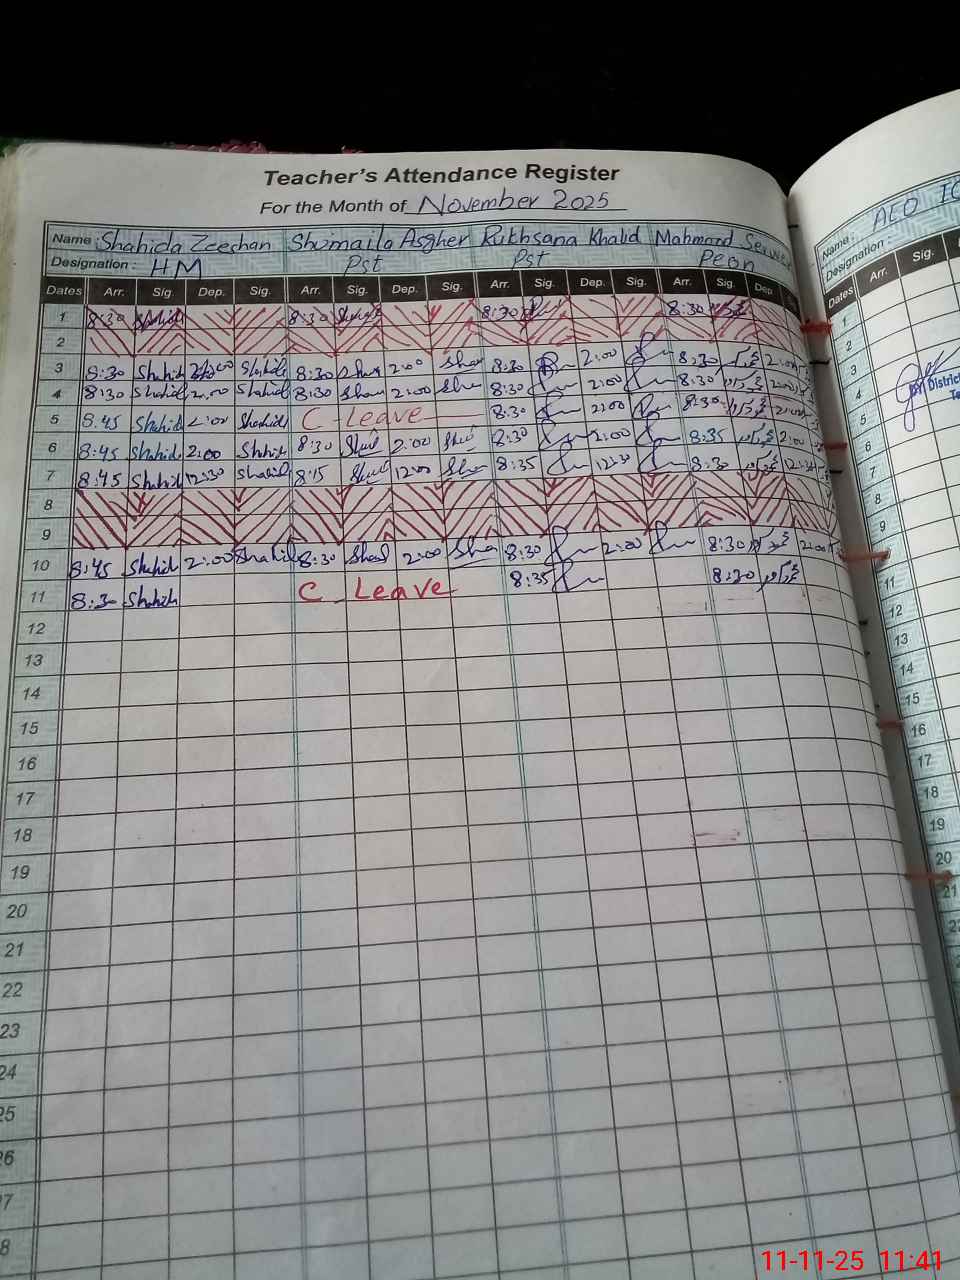 Teacher's Attendance Register
For the Month of November 2025
Name : Shahida Zeeshan Shumaila Asgher Rukhsana Khalid Mahmood
Designation : HM Pst Pst Peon
Dates Arr. Sig. Dep. Sig. Arr. Sig. Dep. Sig. Arr. Sig. Dep. Sig. Arr. Sig. Dep.
1 8:30 Shahid 8:30 8:30 8:30
2
3 8:30 Shahid 2:00 Shahid 8:30 Sham 2:00 Sham 8:30 2:00 8:30 2:00
4 8:30 Shahid 2:00 Shahid 8:30 Sham 2:00 8:30 2:00 8:30
5 8:45 Shahid 2:00 Shahid C Leave 8:30 2:00 8:30 2:00
6 8:45 Shahid 2:00 Shahid 8:30 2:00 8:30 2:00 8:35 2:00
7 8:45 Shahid 12:30 Shahid 8:15 12:00 8:35 12:30 8:30 12:30
8
9
10 8:45 Shahid 2:00 Shahid 8:30 2:00 8:30 2:00 8:30 2:00
11 8:30 Shahid C Leave 8:35 8:30
12
13
14
15
16
17
18
19
20
21
22
23
24
25
26
7
8
AEO
Name :
Designation :
Dates Arr. Sig.
1
2
3
4
5
6
7
8
9
11
12
13
14
15
16
17
18
19
20
21
District
11-11-25 11:41